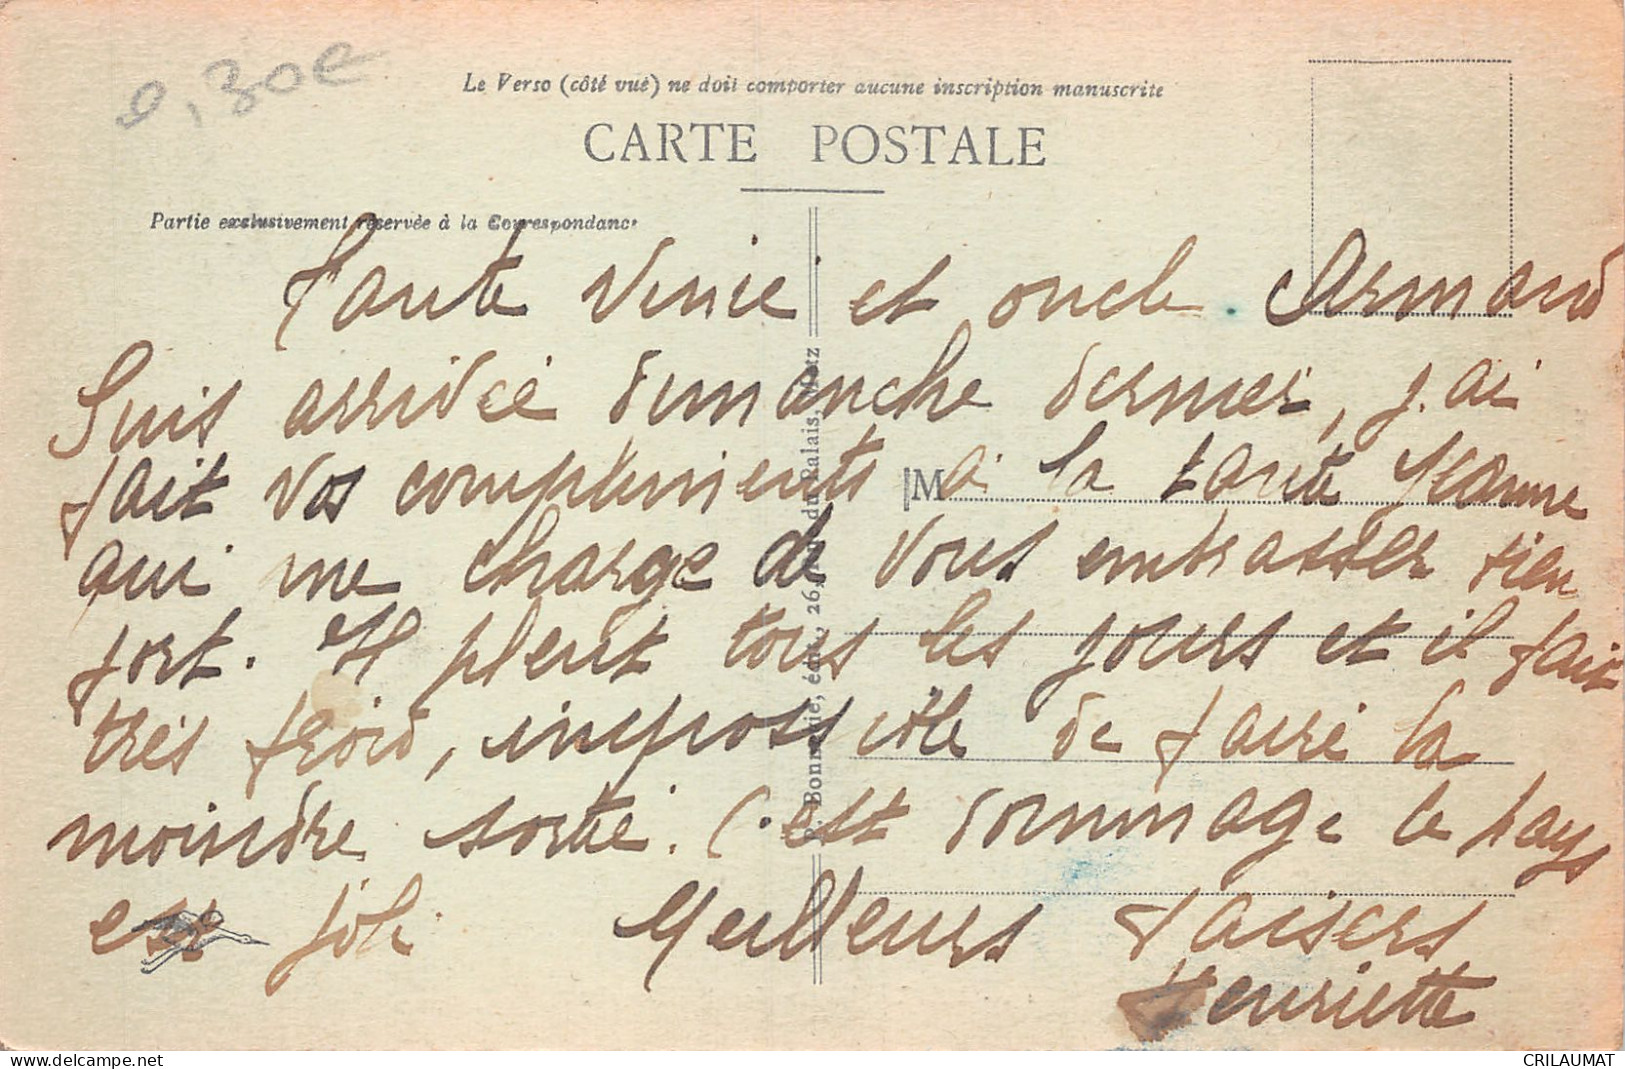 0,30€
Le Verso (côté vue) ne doit comporter aucune inscription manuscrite
CARTE POSTALE
Partie exclusivement réservée à la Correspondance
Tante Ninie et oncle Armand
Suis arrivée dimanche dernier, j'ai
fait vos compliments à la tante Jeanne
qui me charge de vous embrasser bien
fort. Il pleut tous les jours et il fait
très froid, impossible de faire la
moindre sortie. C'est dommage le pays
est joli Meilleurs baisers
Henriette
M
P. Bonnerie, édit., 26, du Palais, Metz
delcampe.net
CRILAUMAT